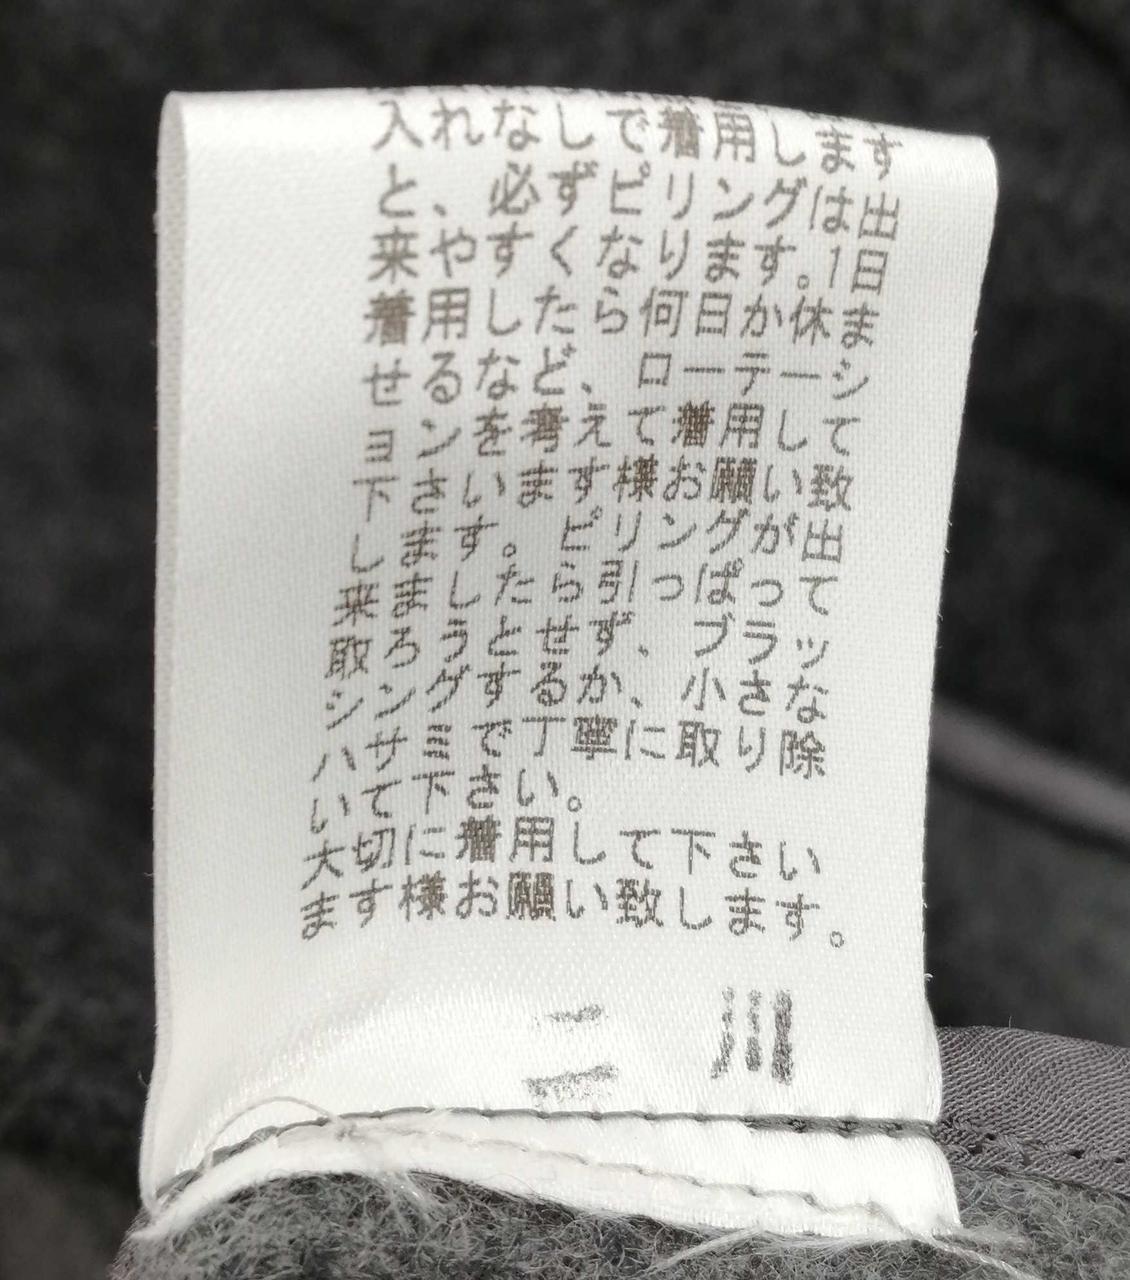 入れなしで着用します
と、必ずピリングは出
来やすくなります。1日
着用したら何日か休ま
せるなど、ローテーシ
ョンを考えて着用して
下さいます様お願い致
します。ピリングが出
来ましたら引っぱって
取ろうとせず、ブラッ
シングするか、小さな
ハサミで丁寧に取り除
いて下さい。
大切に着用して下さい
ます様お願い致します。
二 川